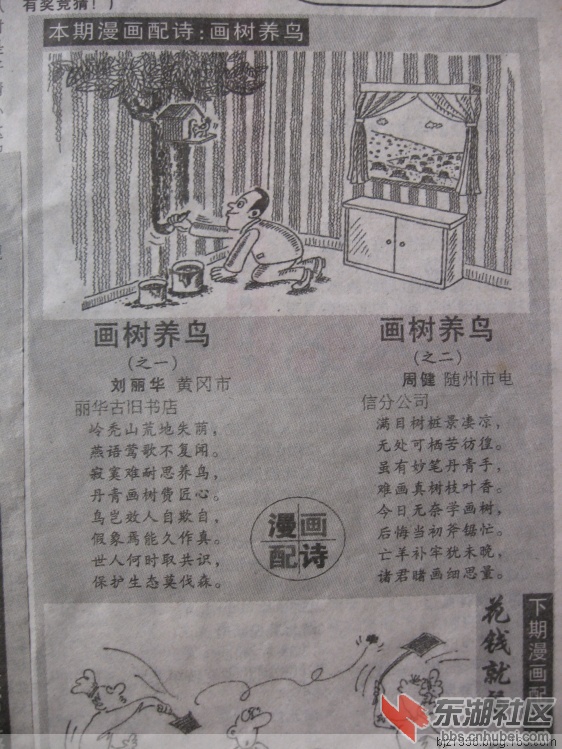 有奖竞猜！）
本期漫画配诗：画树养鸟
画树养鸟
（之一）
刘丽华 黄冈市
丽华古旧书店
岭秃山荒地失荫，
燕语莺歌不复闻。
寂寞难耐思养鸟，
丹青画树费匠心。
鸟岂效人自欺自，
假象焉能久作真。
世人何时取共识，
保护生态莫伐森。
画树养鸟
（之二）
周健 随州市电
信分公司
满目树桩景凄凉，
无处可栖苦彷徨。
虽有妙笔丹青手，
难画真树枝叶香。
今日无奈学画树，
后悔当初斧锯忙。
亡羊补牢犹未晚，
诸君睹画细思量。
漫画
配诗
下期漫画配
花钱就
东湖社区
bbs.cnhubei.com